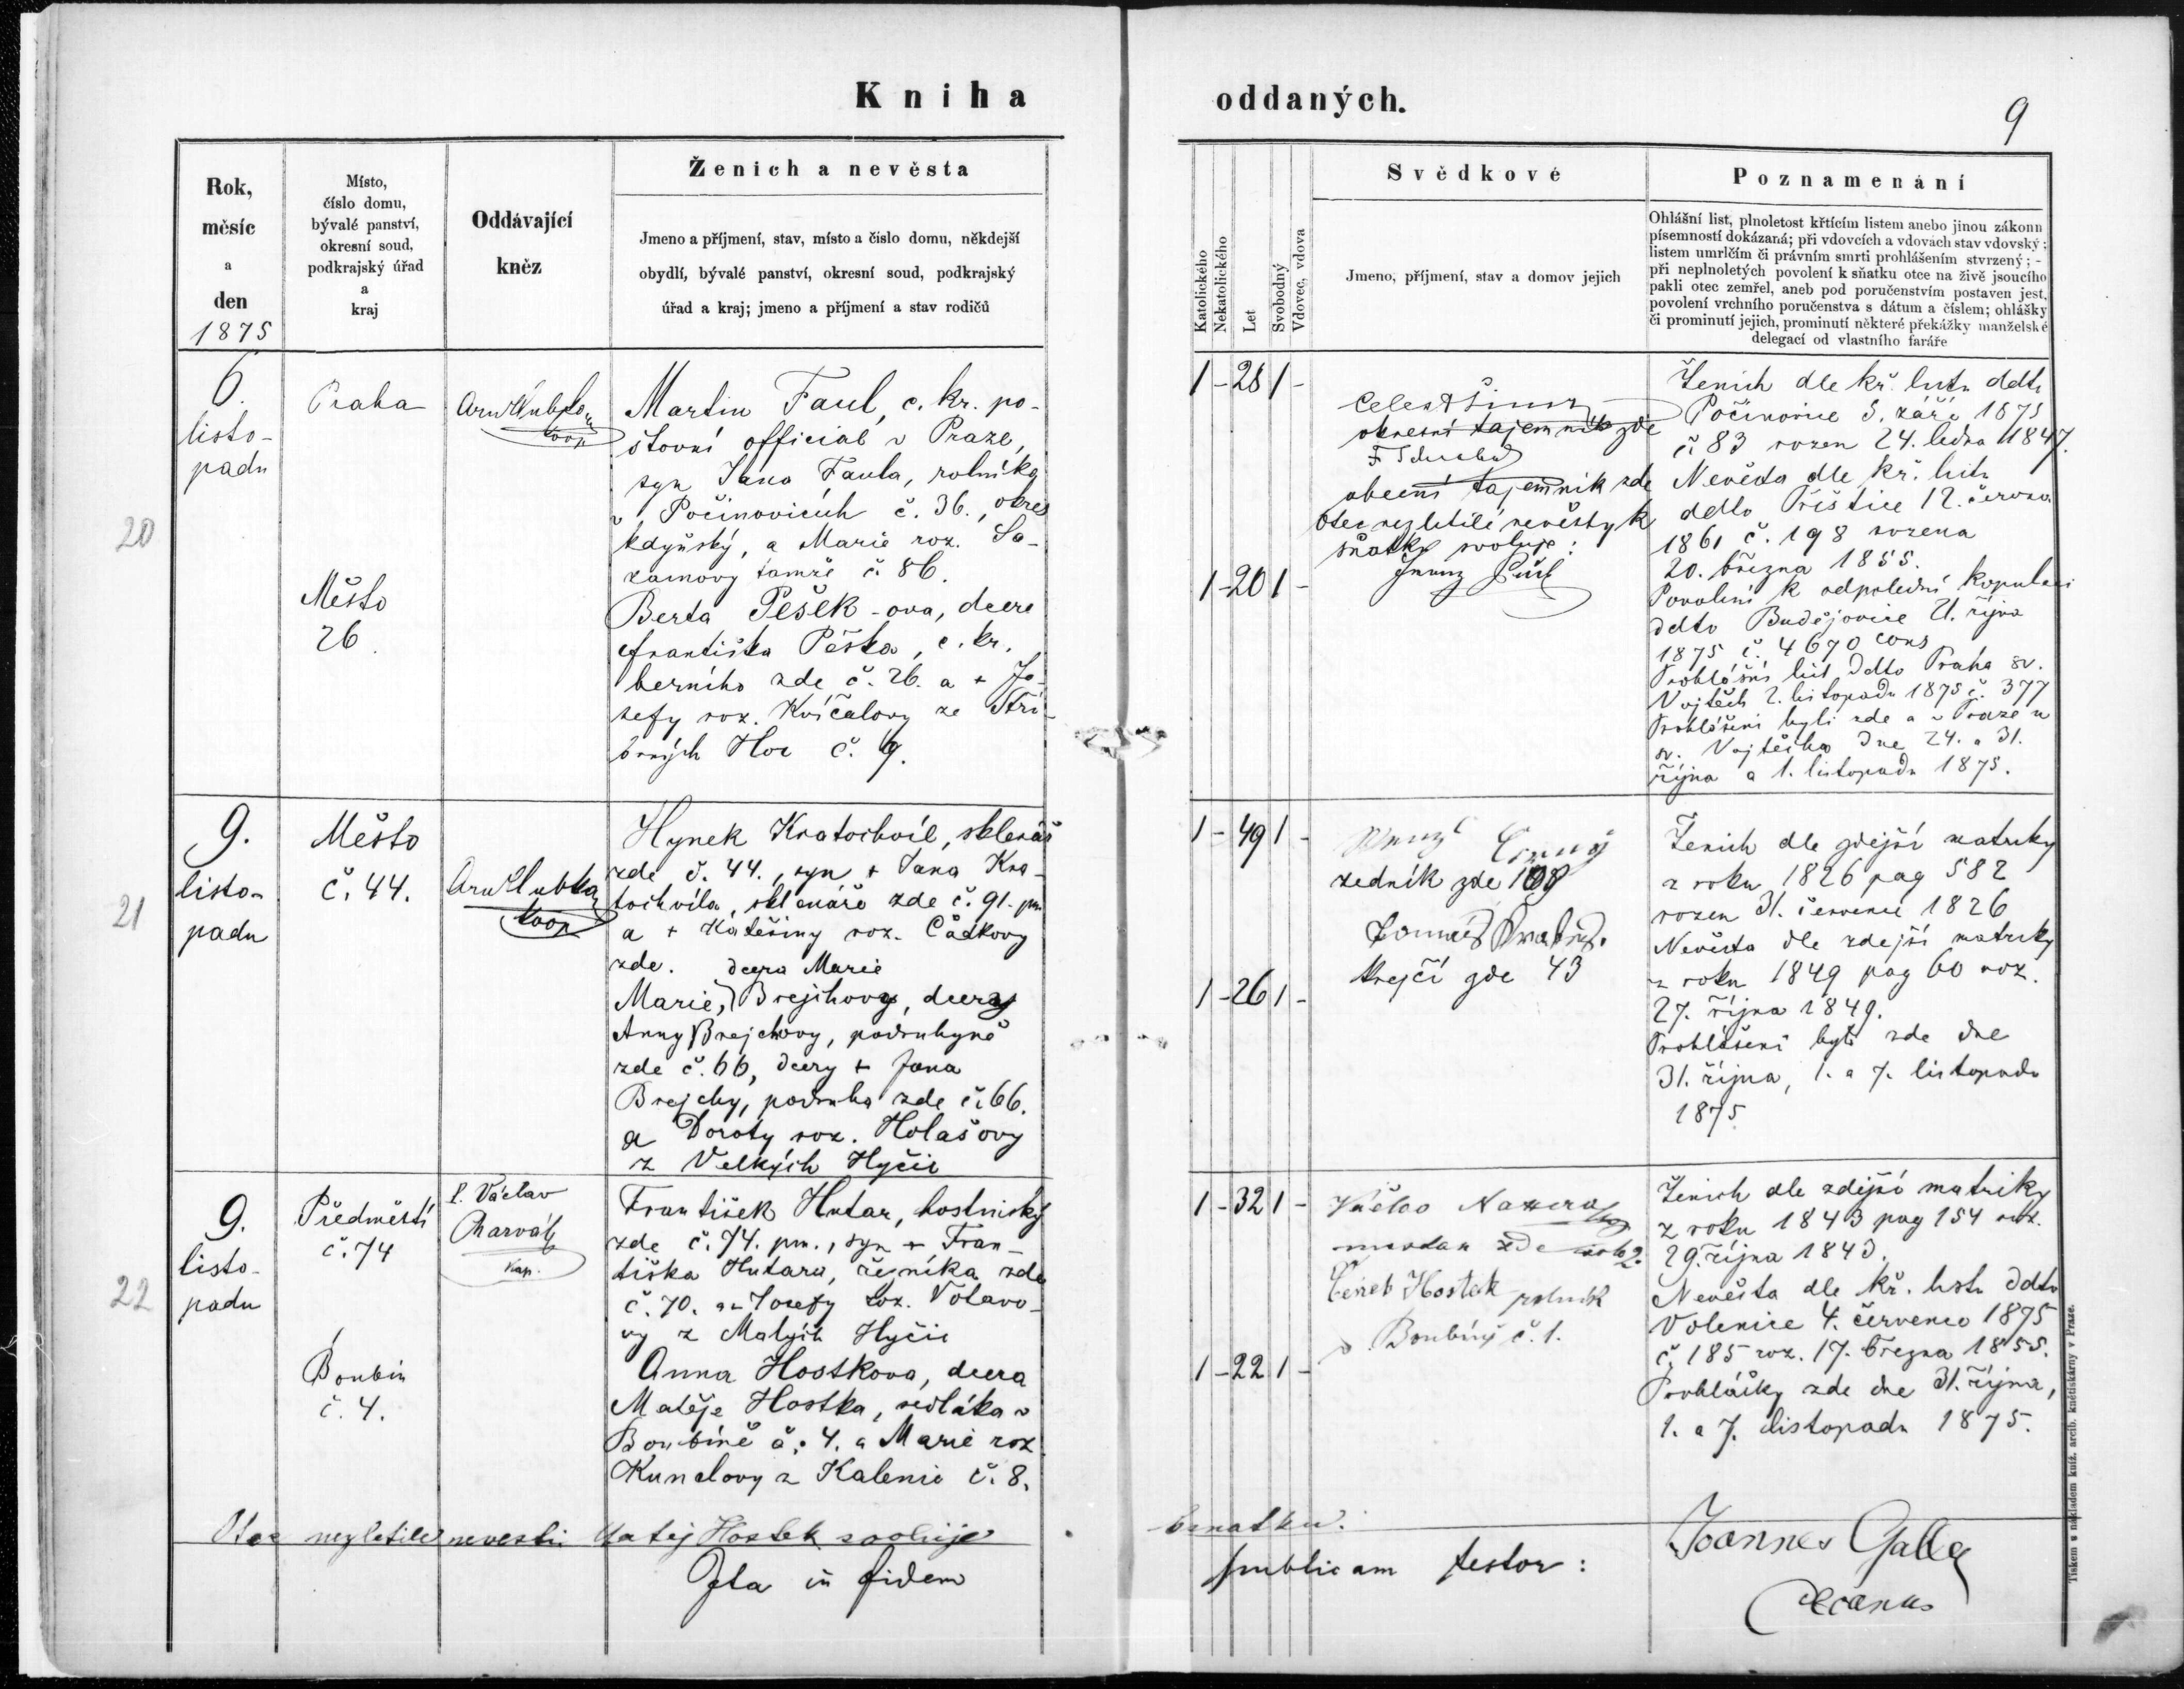 Kniha oddaných.
9
Rok,
měsíc
a
den
1875
Místo,
číslo domu,
bývalé panství,
okresní soud,
podkrajský úřad
a
kraj
Oddávající
kněz
Ženich a nevěsta
Jmeno a příjmení, stav, místo a číslo domu, někdejší
obydlí, bývalé panství, okresní soud, podkrajský
úřad a kraj; jmeno a příjmení a stav rodičů
Katolického
Nekatolického
Let
Svobodný
Vdovec, vdova
Svědkové
Jmeno, příjmení, stav a domov jejich
Poznamenání
Ohlášní list, plnoletost křtícím listem anebo jinou zákonn
písemností dokázaná; při vdovcích a vdovách stav vdovský;
listem umrlčím či právním smrti prohlášením stvrzený; -
při neplnoletých povolení k sňatku otce na živě jsoucího
pakli otec zemřel, aneb pod poručenstvím postaven jest,
povolení vrchního poručenstva s dátum a číslem; ohlášky
či prominutí jejich, prominutí některé překážky manželské
delegací od vlastního faráře
20
6.
listo-
padu
Praha
Město
26.
koop
Martin Faul, c. kr. po-
štovní official v Praze,
syn Jana Faula, rolníka
v Počinovicích č. 36., okres
kdyňský, a Marie roz. Sa-
zamovy tamže č. 86.
Berta Pešek-ova, dcera
Františka Peška, c. kr.
berního zde č. 26. a + Jo-
sefy roz. Kvíčalovy ze Stří-
brných Hor č. 9.
1 - 28 1 -
1 - 20 1 -
okresní tajemník zde
obecní tajemník zde
Otec nezletilé nevěsty k
sňatku svoluje:
Ženich dle kř. listu ddto
Počinovice 5. září 1875
č 83 rozen 24. ledna 1847.
Nevěsta dle kř. listu
ddto Přeštice 12. června
1861 č. 198 rozena
20. března 1855.
Povolení k odpolední kopulaci
ddto Budějovice 21. října
1875 č. 4670 cons
Prohlášní list ddto Praha sv.
Vojtěch 2. listopadu 1875 č. 377
Prohlášeni byli zde a v Praze u
sv. Vojtěcha dne 24. a 31.
října a 1. listopadu 1875.
21
9.
listo-
padu
Město
č. 44.
koop
Hynek Kratochvíl, sklenář
zde č. 44., syn + Jana Kra-
tochvíla, sklenáře zde č. 91. pm
a + Kateřiny roz. Čadkovy
zde. dcera Marie
Marie, Brejchovy, dcery
Anny Brejchovy, podruhyně
zde č. 66, dcery + Jana
Brejchy, podruha zde č. 66.
a Doroty roz. Holašovy
z Velkých Hyčic
1 - 49 1 -
1 - 26 1 -
zedník zde 108
krejčí zde 43
Ženich dle zdejší matriky
z roku 1826 pag 582
rozen 31. července 1826
Nevěsta dle zdejší matriky
z roku 1849 pag 60 roz.
27. října 1849.
Prohlášeni byli zde dne
31. října, 1. a 7. listopadu
1875
22
9.
listo-
padu
Předměstí
č. 74
Boubín
č. 4.
P. Václav
Charvát
kap.
František Hutar, hostinský
zde č. 74. pm., syn + Fran-
tiška Hutara, řezníka zde
č. 70. a Josefy roz. Votavo-
vy z Malých Hyčic
Anna Hostkova, dcera
Matěje Hostka, sedláka v
Boubíně č. 4. a Marie roz
Kunclovy z Kalenic č. 8.
1 - 32 1 -
1 - 22 1 -
Čeněk Hostek rolník
v Boubíný č. 1.
Ženich dle zdejší matriky
z roku 1843 pag 154 roz.
29. října 1843.
Nevěsta dle kř. listu ddto
Volenice 4. července 1875
č. 185 roz. 17. března 1855.
Prohlášky zde dne 31. října,
1. a 7. listopadu 1875.
Otec nezletile nevesti Matěj Hostek svoluje
k snatku.
Ita in fidem publicam testor:
Joannes Galla
decanus
Tiskem a nákladem kníž. arcib. knětiskárny v Praze.